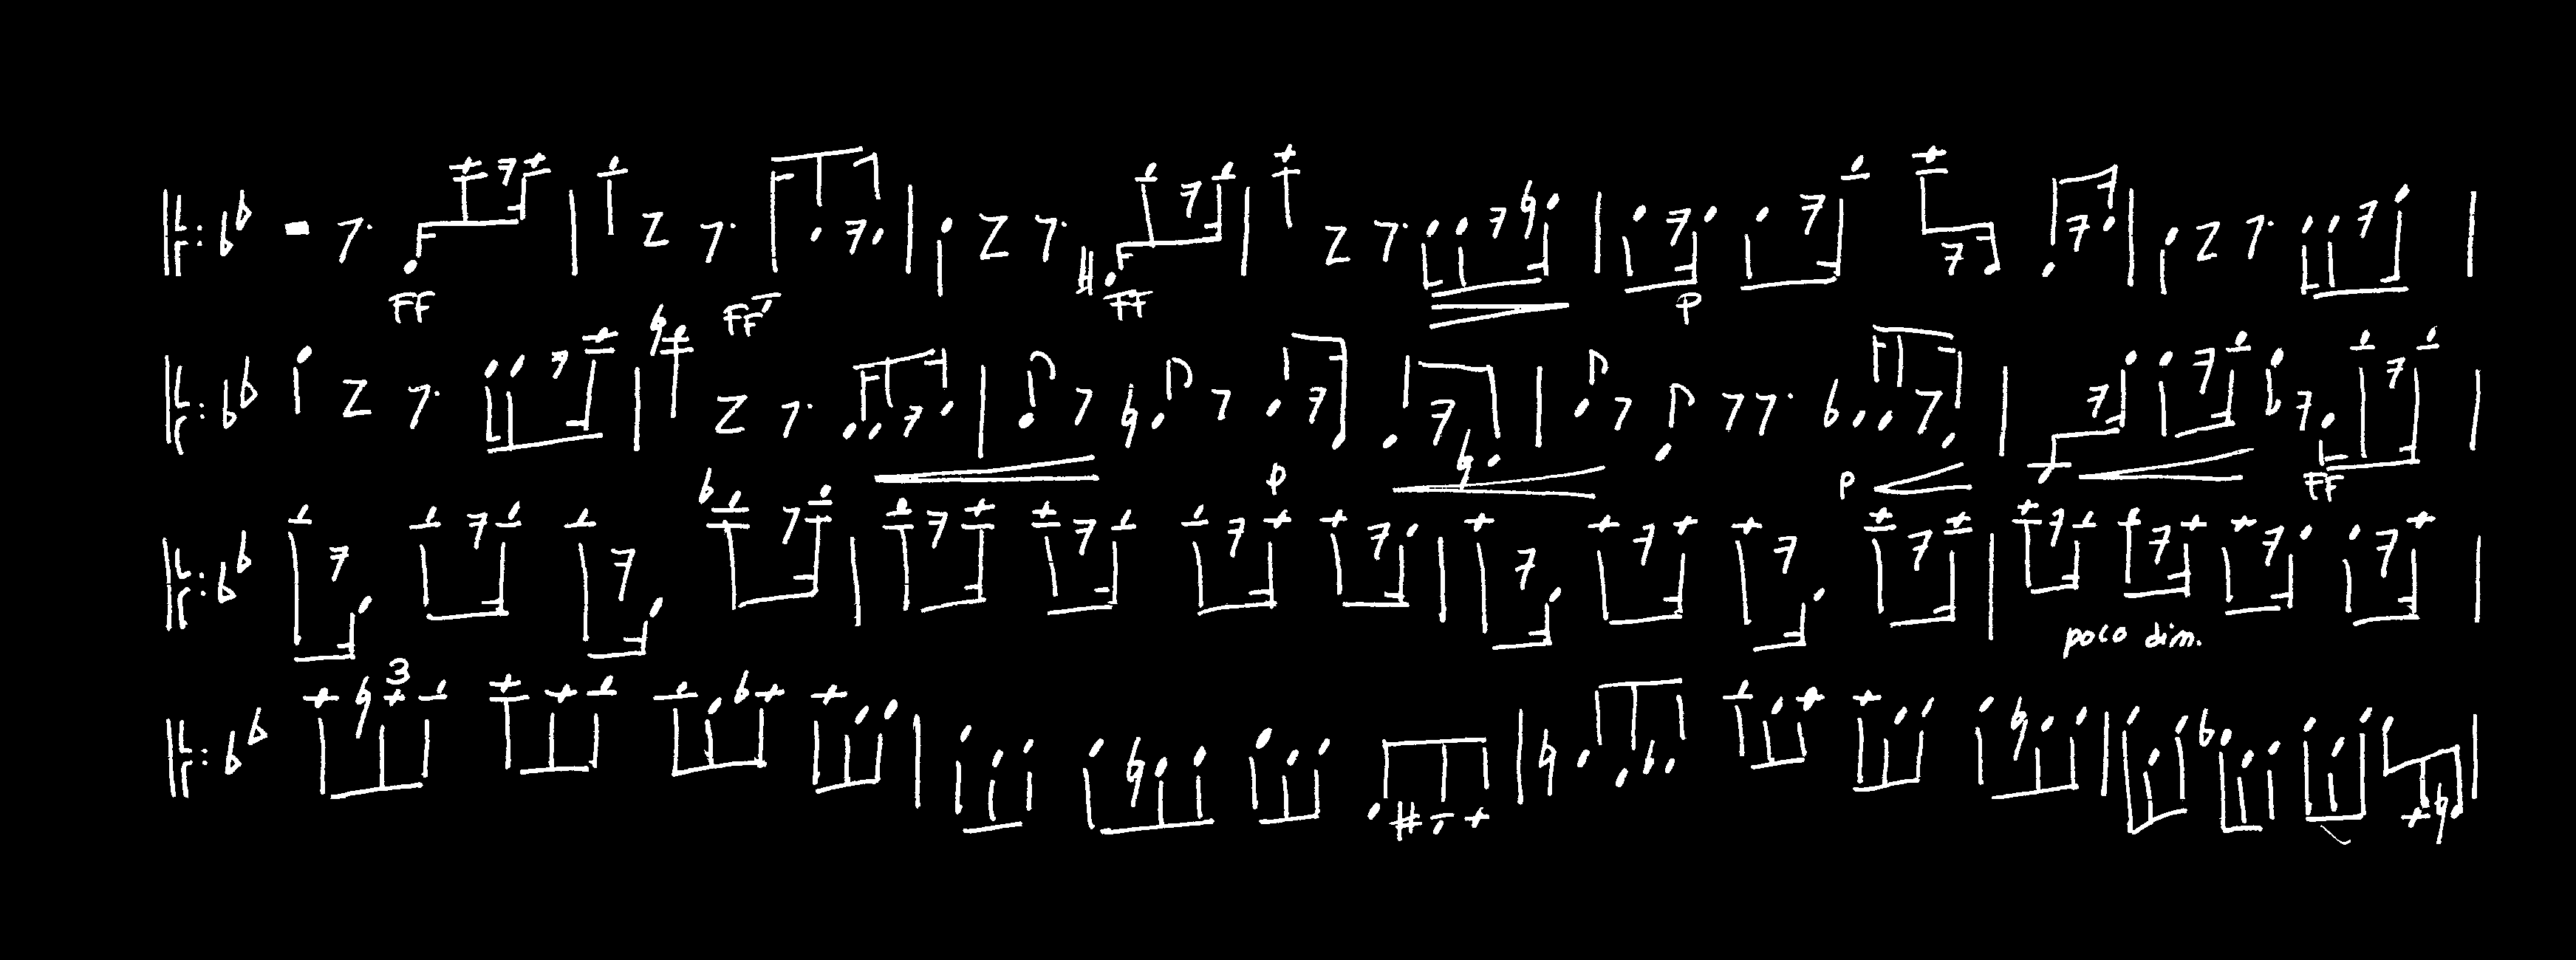 FF FF FF P
P P FF
poco dim.
3